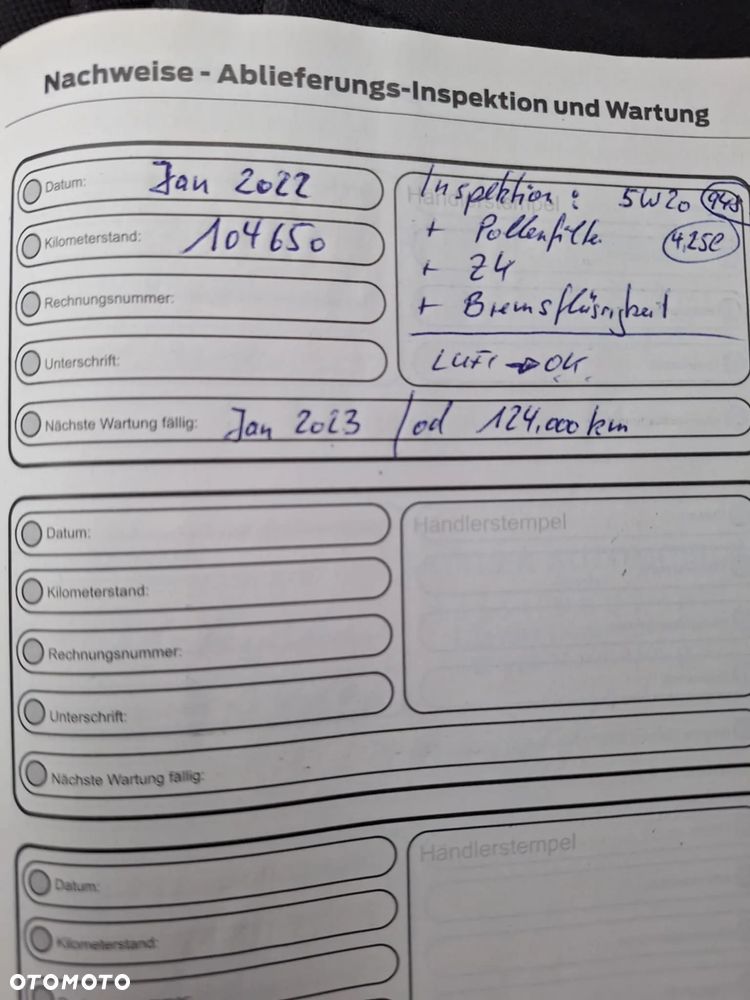 Nachweise - Ablieferungs-Inspektion und Wartung
Datum: Jan 2022
Kilometerstand: 104650
Rechnungsnummer:
Unterschrift:
Händlerstempel
Inspektion: 5W20 948
+ Pollenfilter 4,25l
+ ZK
+ Bremsflüssigkeit
LUFI → OK.
Nächste Wartung fällig: Jan 2023 / od 124.000 km
Datum:
Kilometerstand:
Rechnungsnummer:
Unterschrift:
Nächste Wartung fällig:
Händlerstempel
Datum:
Kilometerstand:
Händlerstempel
OTOMOTO